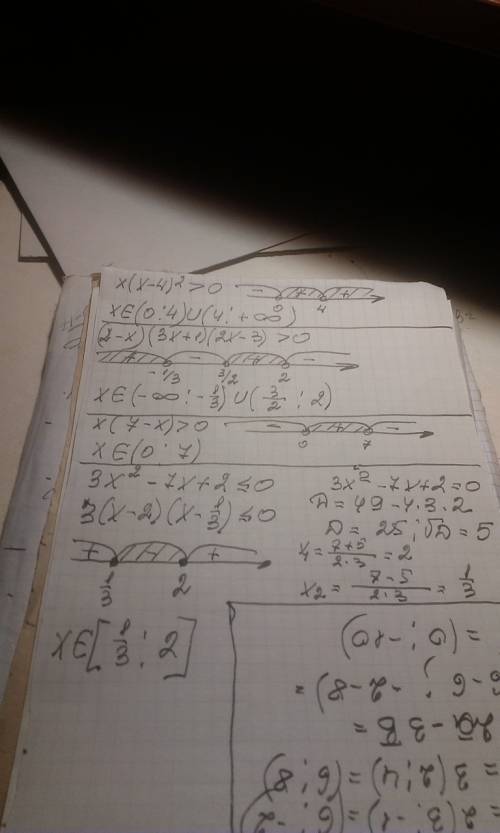 x(x-4)² > 0
- + +
0 4
x∈(0;4)∪(4;+∞)
(2-x)(3x+1)(2x-3) > 0
+ - + -
-1/3 3/2 2
x∈(-∞;-1/3)∪(3/2;2)
x(7-x) > 0
- + -
0 7
x∈(0;7)
3x²-7x+2 ≤ 0
3(x-2)(x-1/3) ≤ 0
+ - +
1/3 2
x∈[1/3;2]
3x²-7x+2=0
D=49-4·3·2
D=25; √D=5
x₁=(7+5)/(2·3)=2
x₂=(7-5)/(2·3)=1/3
=3(2;4)=(6;